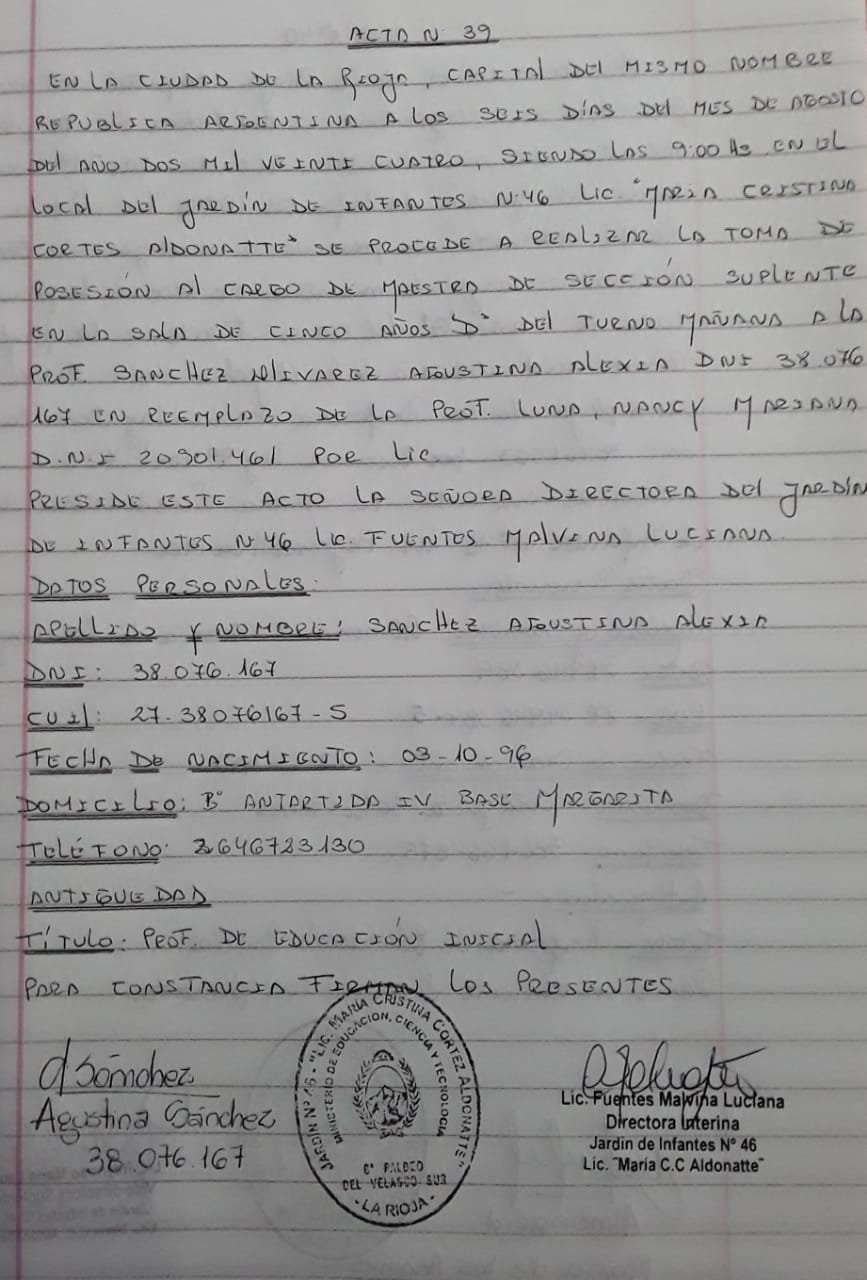 ACTA N. 39
EN LA CIUDAD DE LA RIOJA, CAPITAL DEL MISMO NOMBRE
REPUBLICA ARGENTINA A LOS SEIS DÍAS DEL MES DE AGOSTO
DEL AÑO DOS MIL VEINTI CUATRO, SIENDO LAS 9:00 Hs EN EL
LOCAL DEL JARDÍN DE INFANTES N.46 Lic. "MARIA CRISTINA
CORTES ALDONATTE" SE PROCEDE A REALIZAR LA TOMA DE
POSESIÓN AL CARGO DE MAESTRA DE SECCIÓN SUPLENTE
EN LA SALA DE CINCO AÑOS D" DEL TURNO MAÑANA A LA
PROF. SANCHEZ ALIVAREZ AGUSTINA ALEXIA DNI 38.076
167 EN REEMPLAZO DE LA PROF. LUNA, NANCY MARIANA
D.N.I 20901.461 POR Lic.
PRESIDE ESTE ACTO LA SEÑORA DIRECTORA DEL JARDÍN
DE INFANTES N.46 Lic. FUENTES MALVINA LUCIANA.
DATOS PERSONALES:
APELLIDO Y NOMBRE: SANCHEZ AGUSTINA ALEXIA
DNI: 38.076.167
CUIL: 27.38076167-5
FECHA DE NACIMIENTO: 03-10-96
DOMICILIO: B° ANTARTIDA IV BASE MARGARITA
TELÉFONO: 2646723130
ANTIGUEDAD
TÍTULO: PROF. DE EDUCACIÓN INICIAL
PARA CONSTANCIA FIRMAN LOS PRESENTES
JARDIN Nº 46 - "LIC. MARIA CRISTINA CORTEZ ALDONATTE"
MINISTERIO DE EDUCACION, CIENCIA Y TECNOLOGIA
Bº FALDEO
DEL VELASCO SUR
- LA RIOJA -
ASánchez
Agustina Sánchez
38.076.167
Lic. Fuentes Malvina Luciana
Directora Interina
Jardin de Infantes Nº 46
Lic. "Maria C.C Aldonatte"